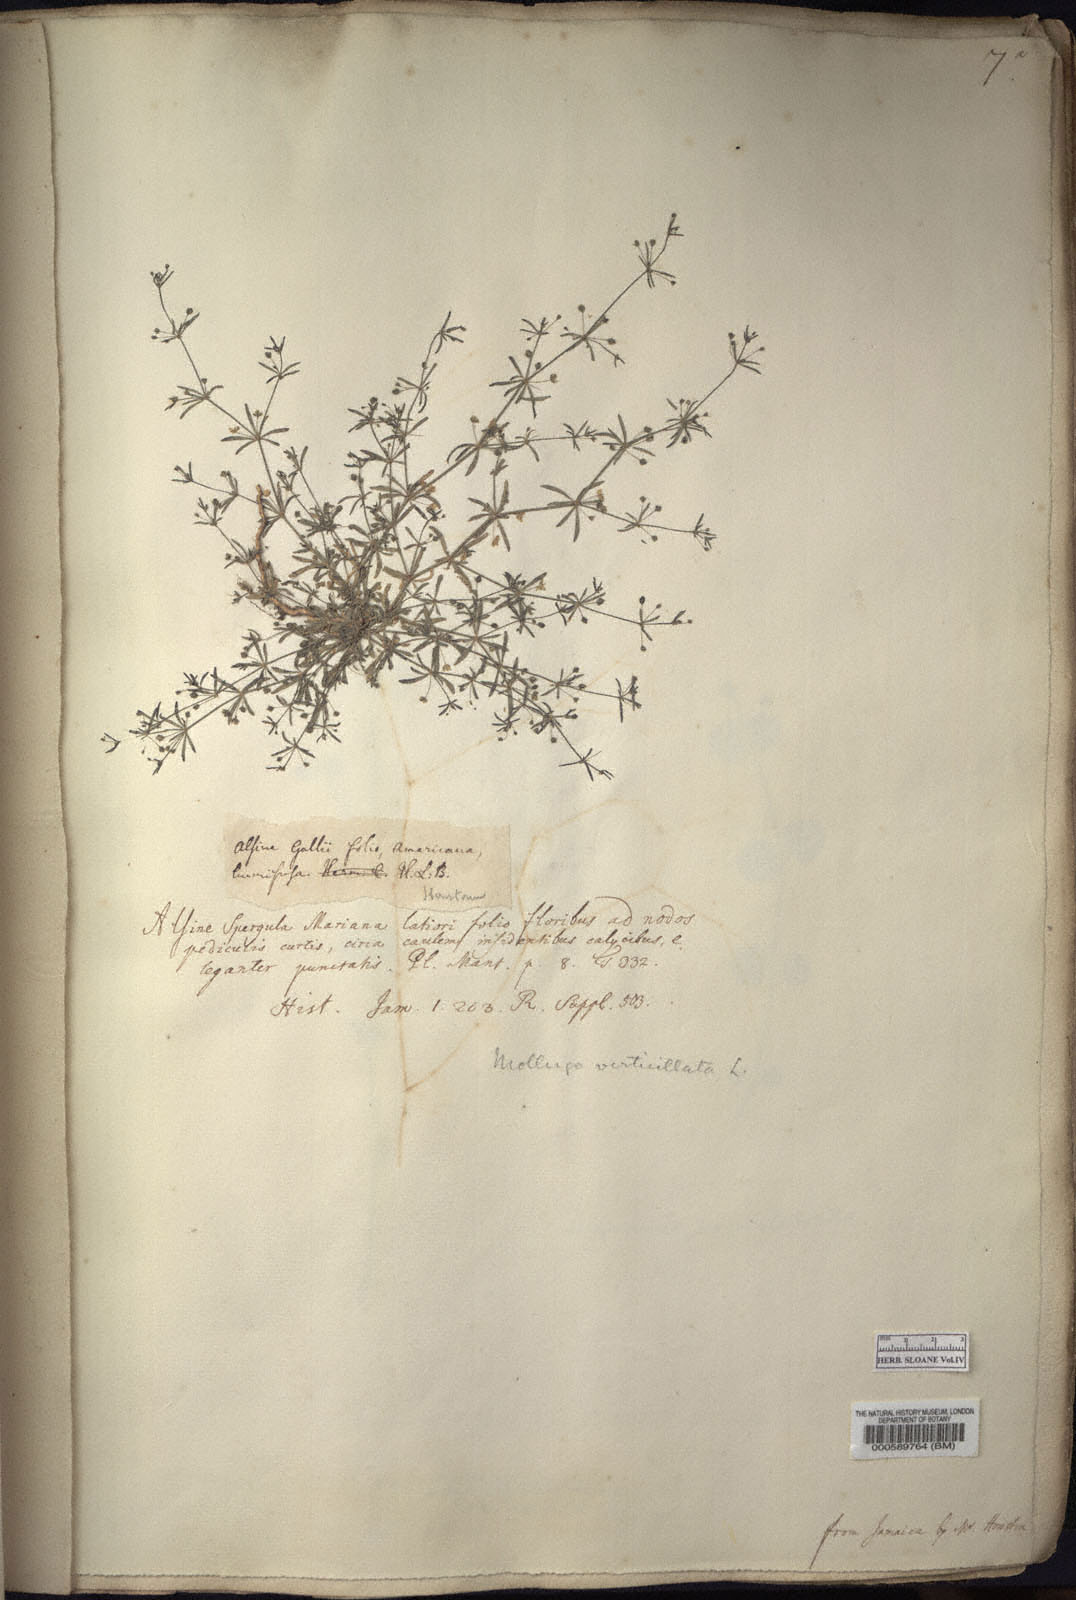 7a.
Alsine Gallii folio, Americana,
humifusa. Herm. C. H.L.B.
Houstoun
Alsine Spergula Mariana latiori folio floribus ad nodos
pediculis curtis, circa caulem insidentibus calycibus, e-
leganter punctatis. Pl. Mant. p. 8. T. 332.
Hist. Jam. 1. 203. R. Suppl. 503.
Mollugo verticillata L.
mm 1 2 3
HERB. SLOANE Vol.IV
THE NATURAL HISTORY MUSEUM, LONDON
DEPARTMENT OF BOTANY
000589764 (BM)
from Jamaica by Mr. Houston